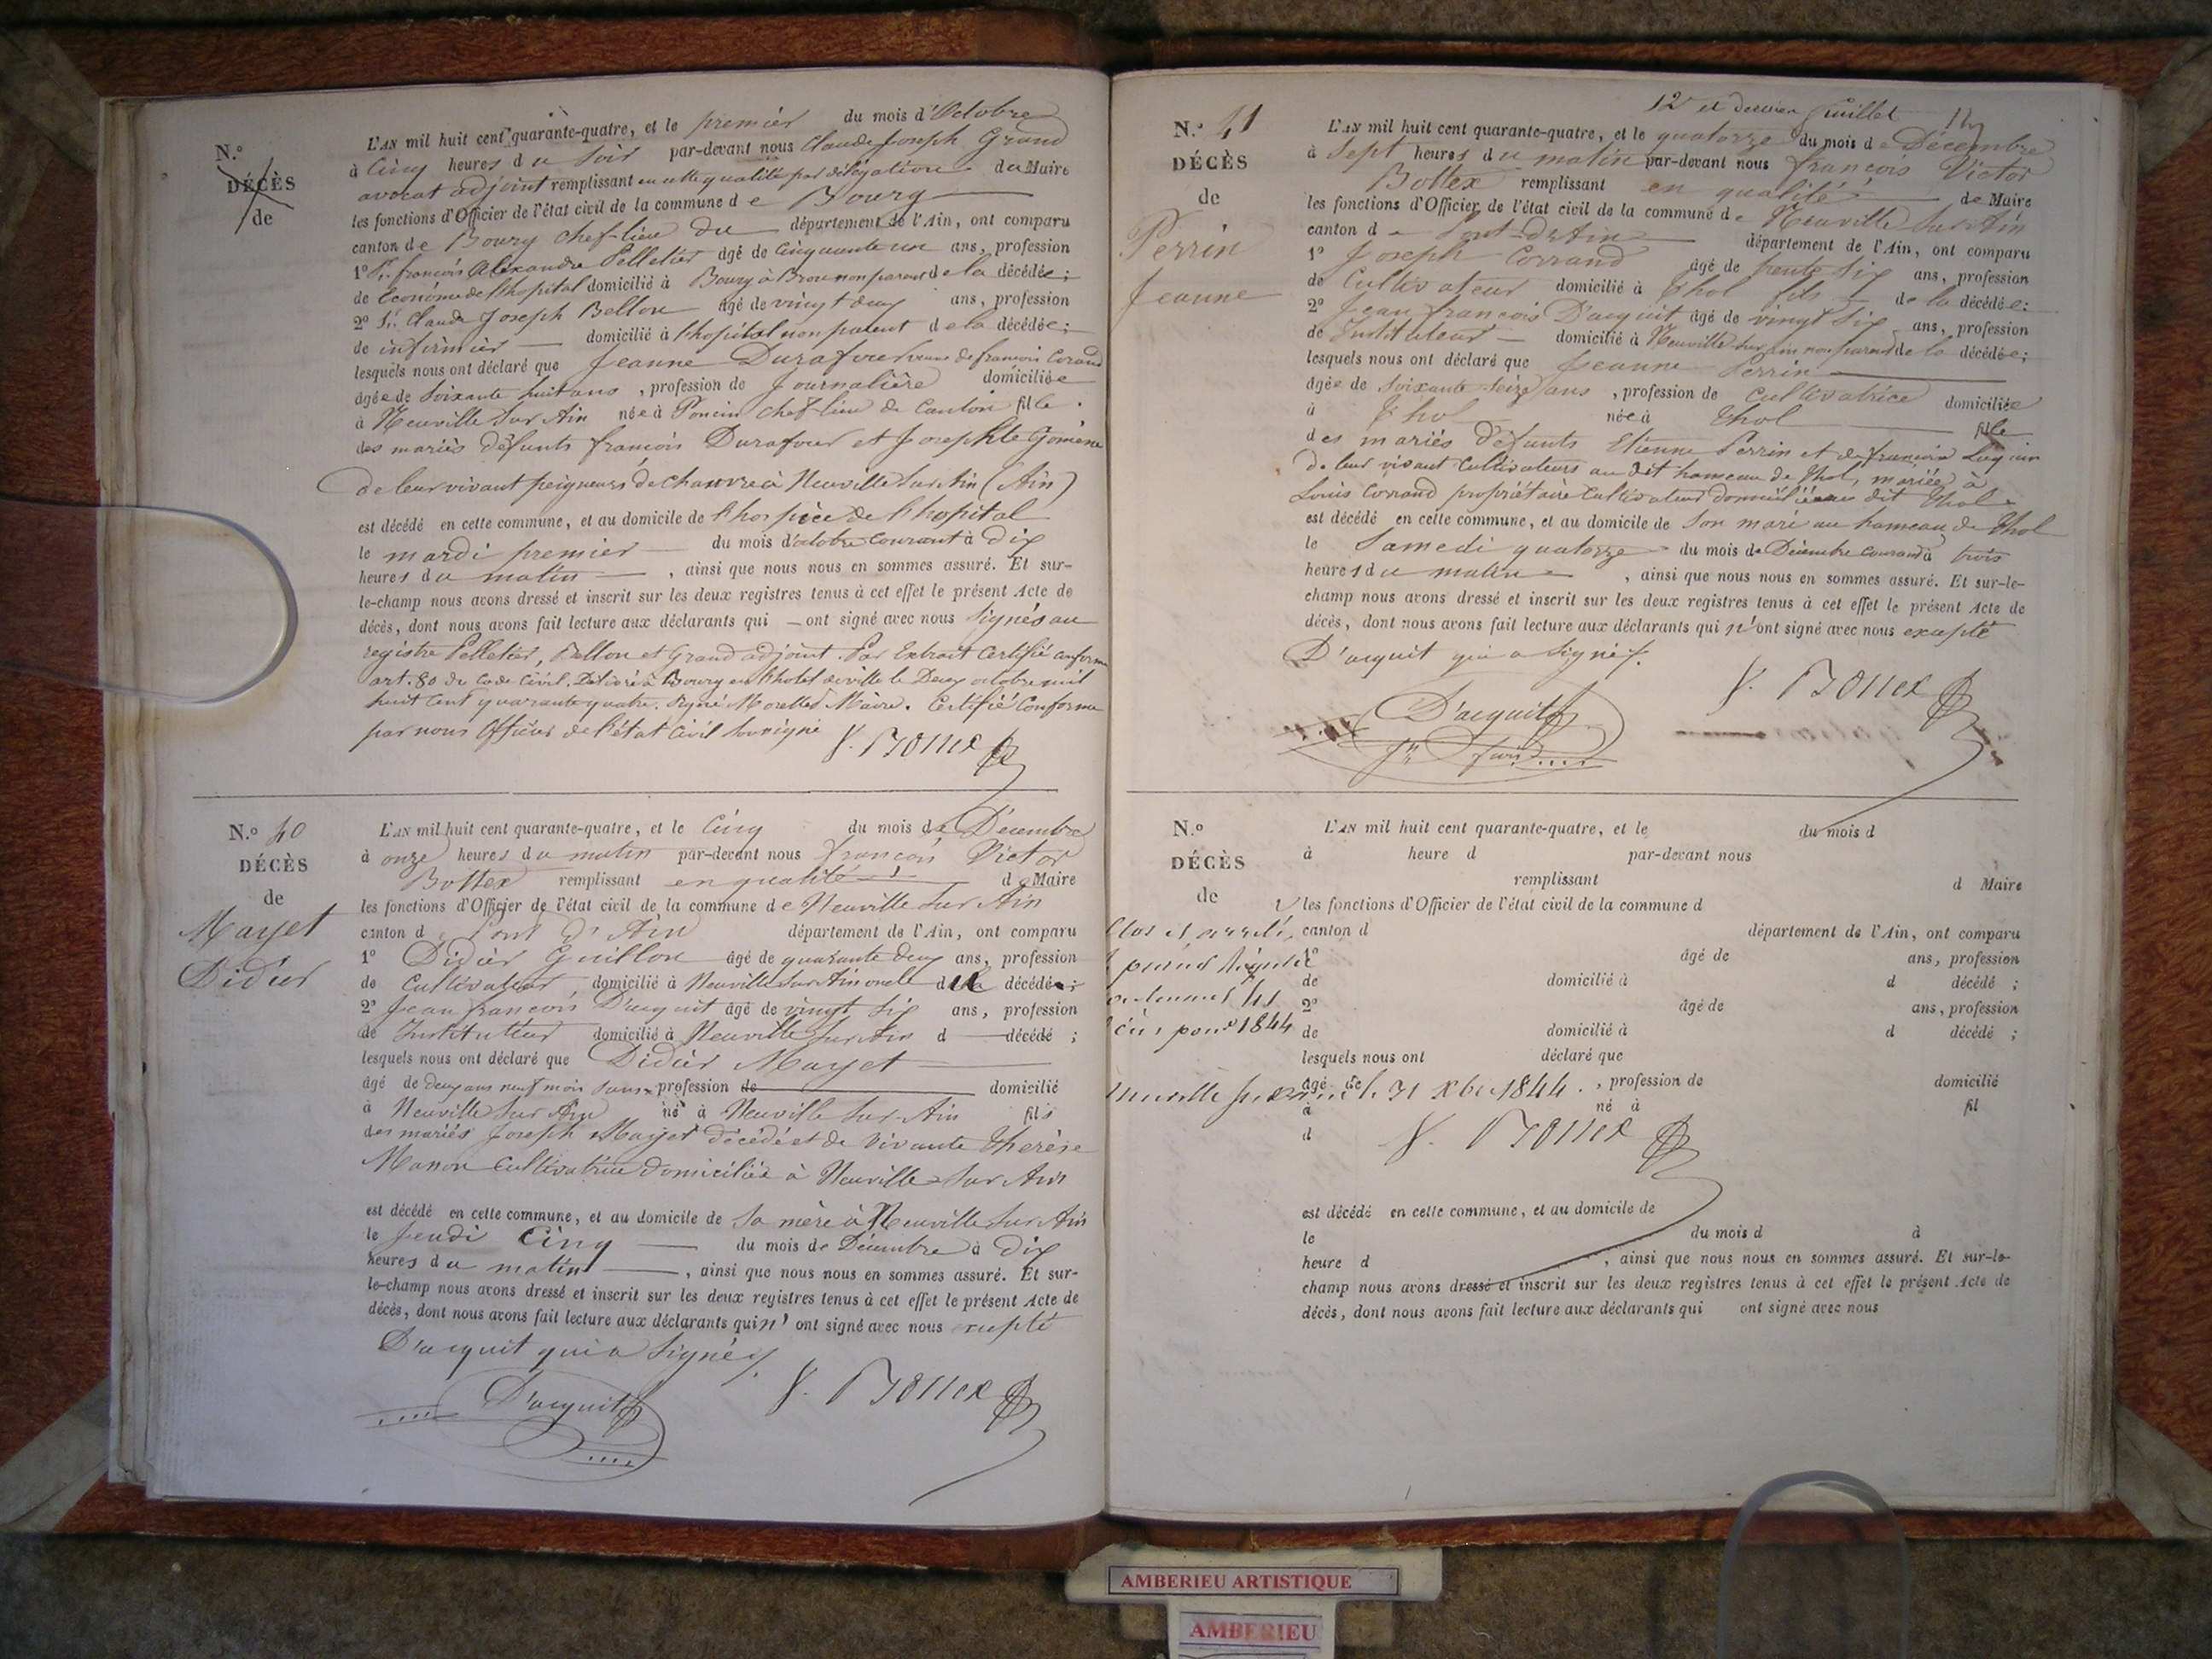 N.º
DÉCÈS
de
L'AN mil huit cent quarante-quatre, et le premier du mois d'Octobre
à Cinq heures du Soir par-devant nous Claude Joseph Grand
avocat adjoint remplissant en cette qualité par délégation du Maire
les fonctions d'Officier de l'état civil de la commune de Bourg
canton de Bourg chef-lieu du département de l'Ain, ont comparu
1º Sr. françois Alexandre Pelletier âgé de Cinquante un ans, profession
de Econome de l'hopital domicilié à Bourg à Brou non parent de la décédée;
2º Sr. Claude Joseph Bellon âgé de vingt deux ans, profession
de infirmier domicilié à l'hopital non parent de la décédée;
lesquels nous ont déclaré que Jeanne Durafour veuve de françois Corand
âgée de Soixante huit ans, profession de Journalière domiciliée
à Neuville Sur Ain née à Poncin chef-lieu de Canton fille
des mariés défunts françois Durafour et Josephte
de leur vivant peigneurs de chanvre à Neuville Sur Ain (Ain)
est décédé en cette commune, et au domicile de l'hospice de l'hopital
le mardi premier du mois d'octobre courant à dix
heures du matin, ainsi que nous nous en sommes assuré. Et sur-
le-champ nous avons dressé et inscrit sur les deux registres tenus à cet effet le présent Acte de
décès, dont nous avons fait lecture aux déclarants qui — ont signé avec nous Signés au
registre Pelletier, Bellon et Grand adjoint. Par Extrait Certifié conforme
art. 80 du Code Civil. Délivré à Bourg en l'hotel de ville le Deux octobre mil
huit Cent quarante quatre. Signé Maire. Certifié Conforme
par nous Officier de l'état Civil Soussigné
V. Bottex
N.º 40
DÉCÈS
de
Mayet
Didier
L'AN mil huit cent quarante-quatre, et le Cinq du mois de Décembre
à onze heures du matin par-devant nous françois Victor
Bottex remplissant en qualité de Maire
les fonctions d'Officier de l'état civil de la commune de Neuville Sur Ain
canton d Pont d'Ain département de l'Ain, ont comparu
1º Didier Guillon âgé de quarante deux ans, profession
de Cultivateur, domicilié à Neuville Sur Ain oncle du décédé;
2º Jean françois D'acquit âgé de vingt Six ans, profession
de Instituteur domicilié à Neuville Sur Ain d décédé;
lesquels nous ont déclaré que Didier Mayet
âgé de deux ans neuf mois Sans profession de domicilié
à Neuville Sur Ain né à Neuville Sur Ain fils
des mariés Joseph Mayet décédé et de vivante Thérèse
Manon Cultivatrice domiciliée à Neuville Sur Ain
est décédé en cette commune, et au domicile de Sa mère à Neuville Sur Ain
le Jeudi Cinq du mois de Décembre à Dix
heures du matin, ainsi que nous nous en sommes assuré. Et sur-
le-champ nous avons dressé et inscrit sur les deux registres tenus à cet effet le présent Acte de
décès, dont nous avons fait lecture aux déclarants qui n'ont signé avec nous excepté
D'acquit qui a Signé.
D'acquit V. Bottex
12e et dernier feuillet
N.º 41
DÉCÈS
de
Perrin
Jeanne
L'AN mil huit cent quarante-quatre, et le quatorze du mois de Décembre
à Sept heures du matin par-devant nous françois Victor
Bottex remplissant en qualité de Maire
les fonctions d'Officier de l'état civil de la commune de Neuville Sur Ain
canton d Pont-D'Ain département de l'Ain, ont comparu
1º Joseph Corrand âgé de trente Six ans, profession
de Cultivateur domicilié à Thol fils de la décédée:
2º Jean françois D'acquit âgé de vingt Six ans, profession
de Instituteur domicilié à Neuville Sur Ain non parent de la décédée;
lesquels nous ont déclaré que Jeanne Perrin
âgée de Soixante Seize ans, profession de Cultivatrice domiciliée
à Thol née à Thol fille
des mariés défunts Etienne Perrin et de
de leur vivant Cultivateurs au dit hameau de Thol, mariée à
Louis Corrand propriétaire Cultivateur domicilié au dit Thol
est décédé en cette commune, et au domicile de Son mari au hameau de Thol
le Samedi quatorze du mois de Décembre courant à trois
heures du matin, ainsi que nous nous en sommes assuré. Et sur-le-
champ nous avons dressé et inscrit sur les deux registres tenus à cet effet le présent Acte de
décès, dont nous avons fait lecture aux déclarants qui n'ont signé avec nous excepté
D'acquit qui a Signé.
D'acquit V. Bottex
N.º
DÉCÈS
de
L'AN mil huit cent quarante-quatre, et le du mois d
à heure d par-devant nous
remplissant d Maire
les fonctions d'Officier de l'état civil de la commune d
Clos et arrêté canton d département de l'Ain, ont comparu
1º âgé de ans, profession
de domicilié à d décédé;
2º âgé de ans, profession
pour 1844 de domicilié à d décédé;
lesquels nous ont déclaré que
âgé de, profession de domicilié
le 31 Xbre 1844.
à né à fil
d
V. Bottex
est décédé en cette commune, et au domicile de
le du mois d à
heure d, ainsi que nous nous en sommes assuré. Et sur-le-
champ nous avons dressé et inscrit sur les deux registres tenus à cet effet le présent Acte de
décès, dont nous avons fait lecture aux déclarants qui ont signé avec nous
AMBERIEU ARTISTIQUE
AMBERIEU